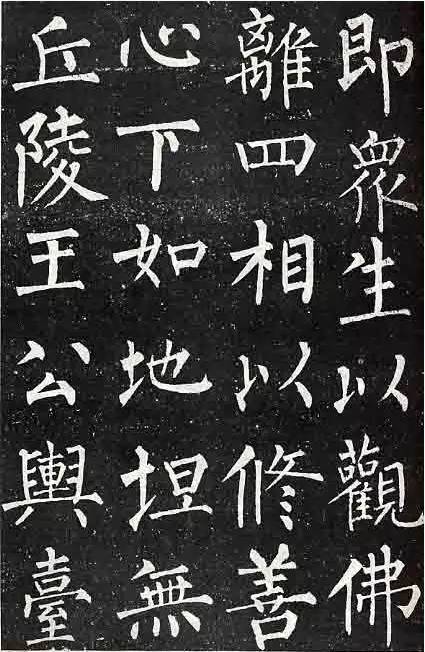 即眾生以觀佛
離四相以修善
心下如地坦無
丘陵王公輿臺